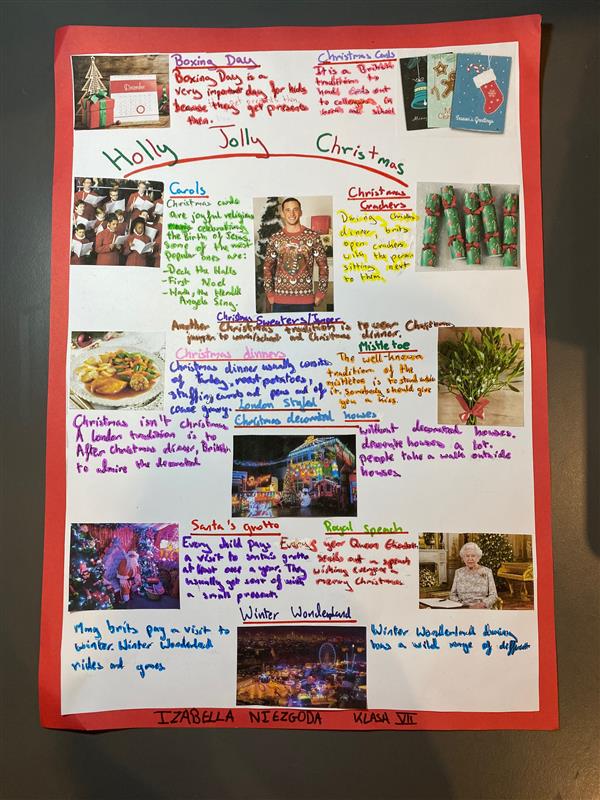 Boxing Day
Boxing Day is a
very important day for kids
because they get presents then
them.
December
Christmas Cards
It is a British
tradition to
hand cards out
to colleagues in
work and school
Season's Greetings
Holly Jolly Christmas
Carols
Christmas carols
are joyful religious
celebrating
the birth of Jesus
some of the most
popular ones are:
-Deck the Halls
-First Noel
-Hark, the Herald
Angels Sing.
Christmas
Crackers
During Christmas
dinner, brits
open crackers
with the person
sitting next
to them.
Christmas Sweaters/Jumper
Another Christmas tradition is to wear Christmas
jumper to work/school and Christmas dinner.
Christmas dinners
Christmas dinner usually consists
of turkey, roast potatoes,
stuffing carrots and peas and of
course gravy.
Mistletoe
The well-known
tradition of the
mistletoe is to stand under
it. Somebody should give
you a kiss.
London Styled
Christmas decorated houses
Christmas isn't Christmas without decorated houses.
A london tradition is to decorate houses a lot.
After Christmas dinner, British people take a walk outside
to admire the decorated houses.
Santa's grotto
Every child pays
a visit to santa's grotto
at least once a year. They
usually get sent of with
a small present
Royal speach
Every year Queen Elizabeth
sends out a speach
wishing everyone a
merry Christmas
Winter Wonderland
Many brits pay a visit to Winter Wonderland during
winter. Winter Wonderland has a wild range of different
rides and games
IZABELLA NIEZGODA KLASA VII